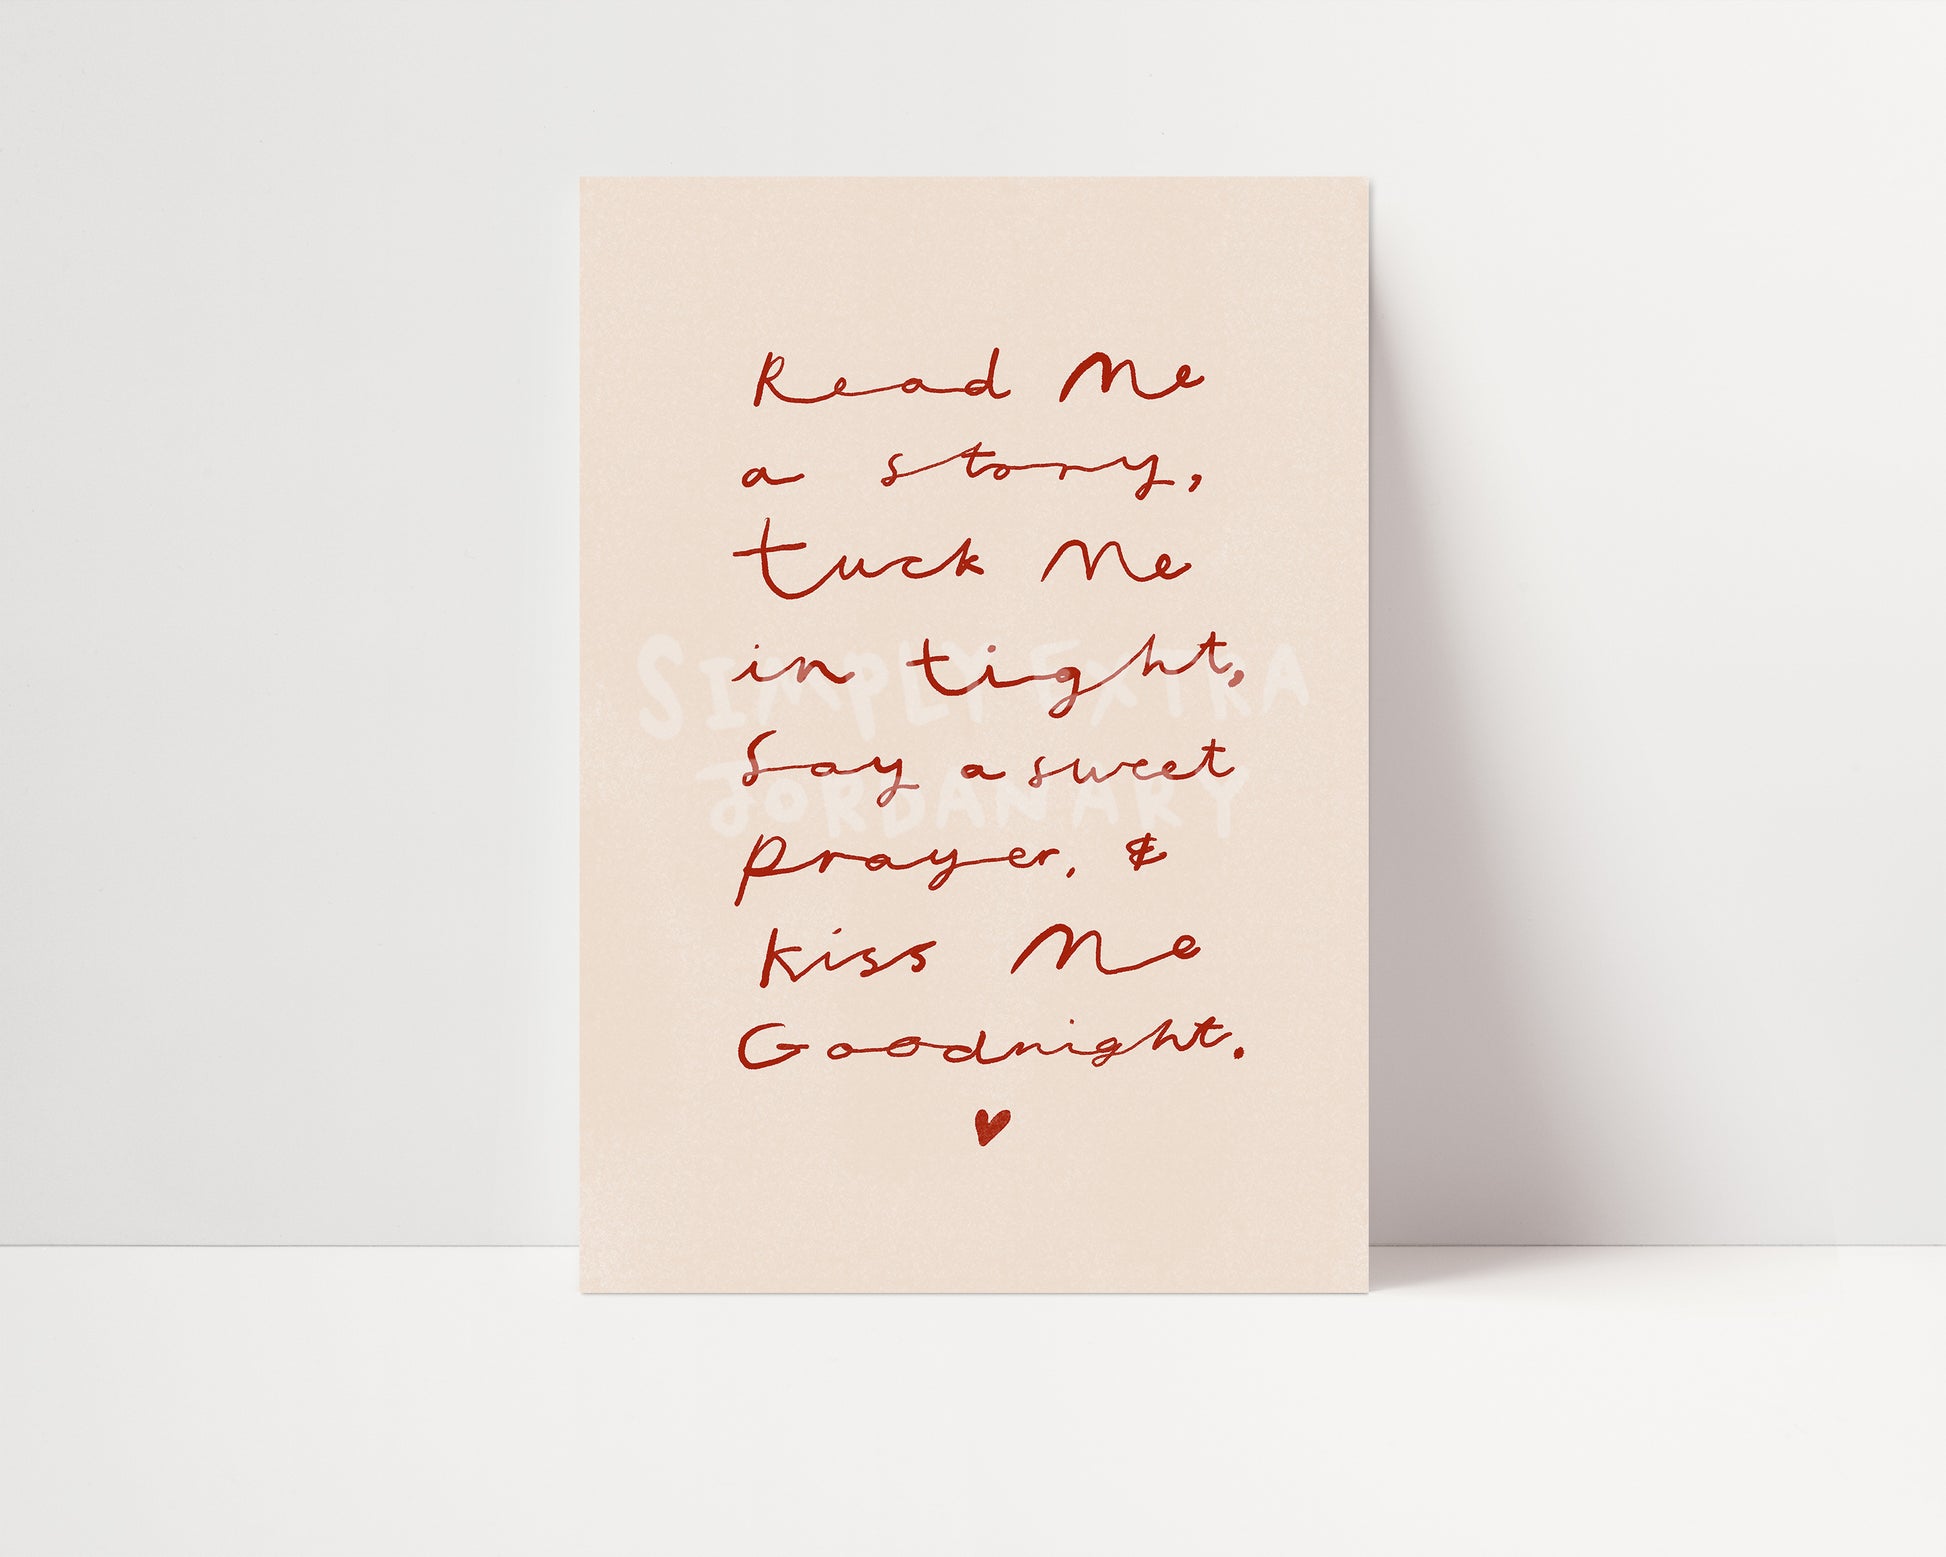 Read Me
a story,
tuck Me
in tight,
Say a sweet
prayer, &
kiss Me
Goodnight.
SIMPLY EXTRA
JORDANARY